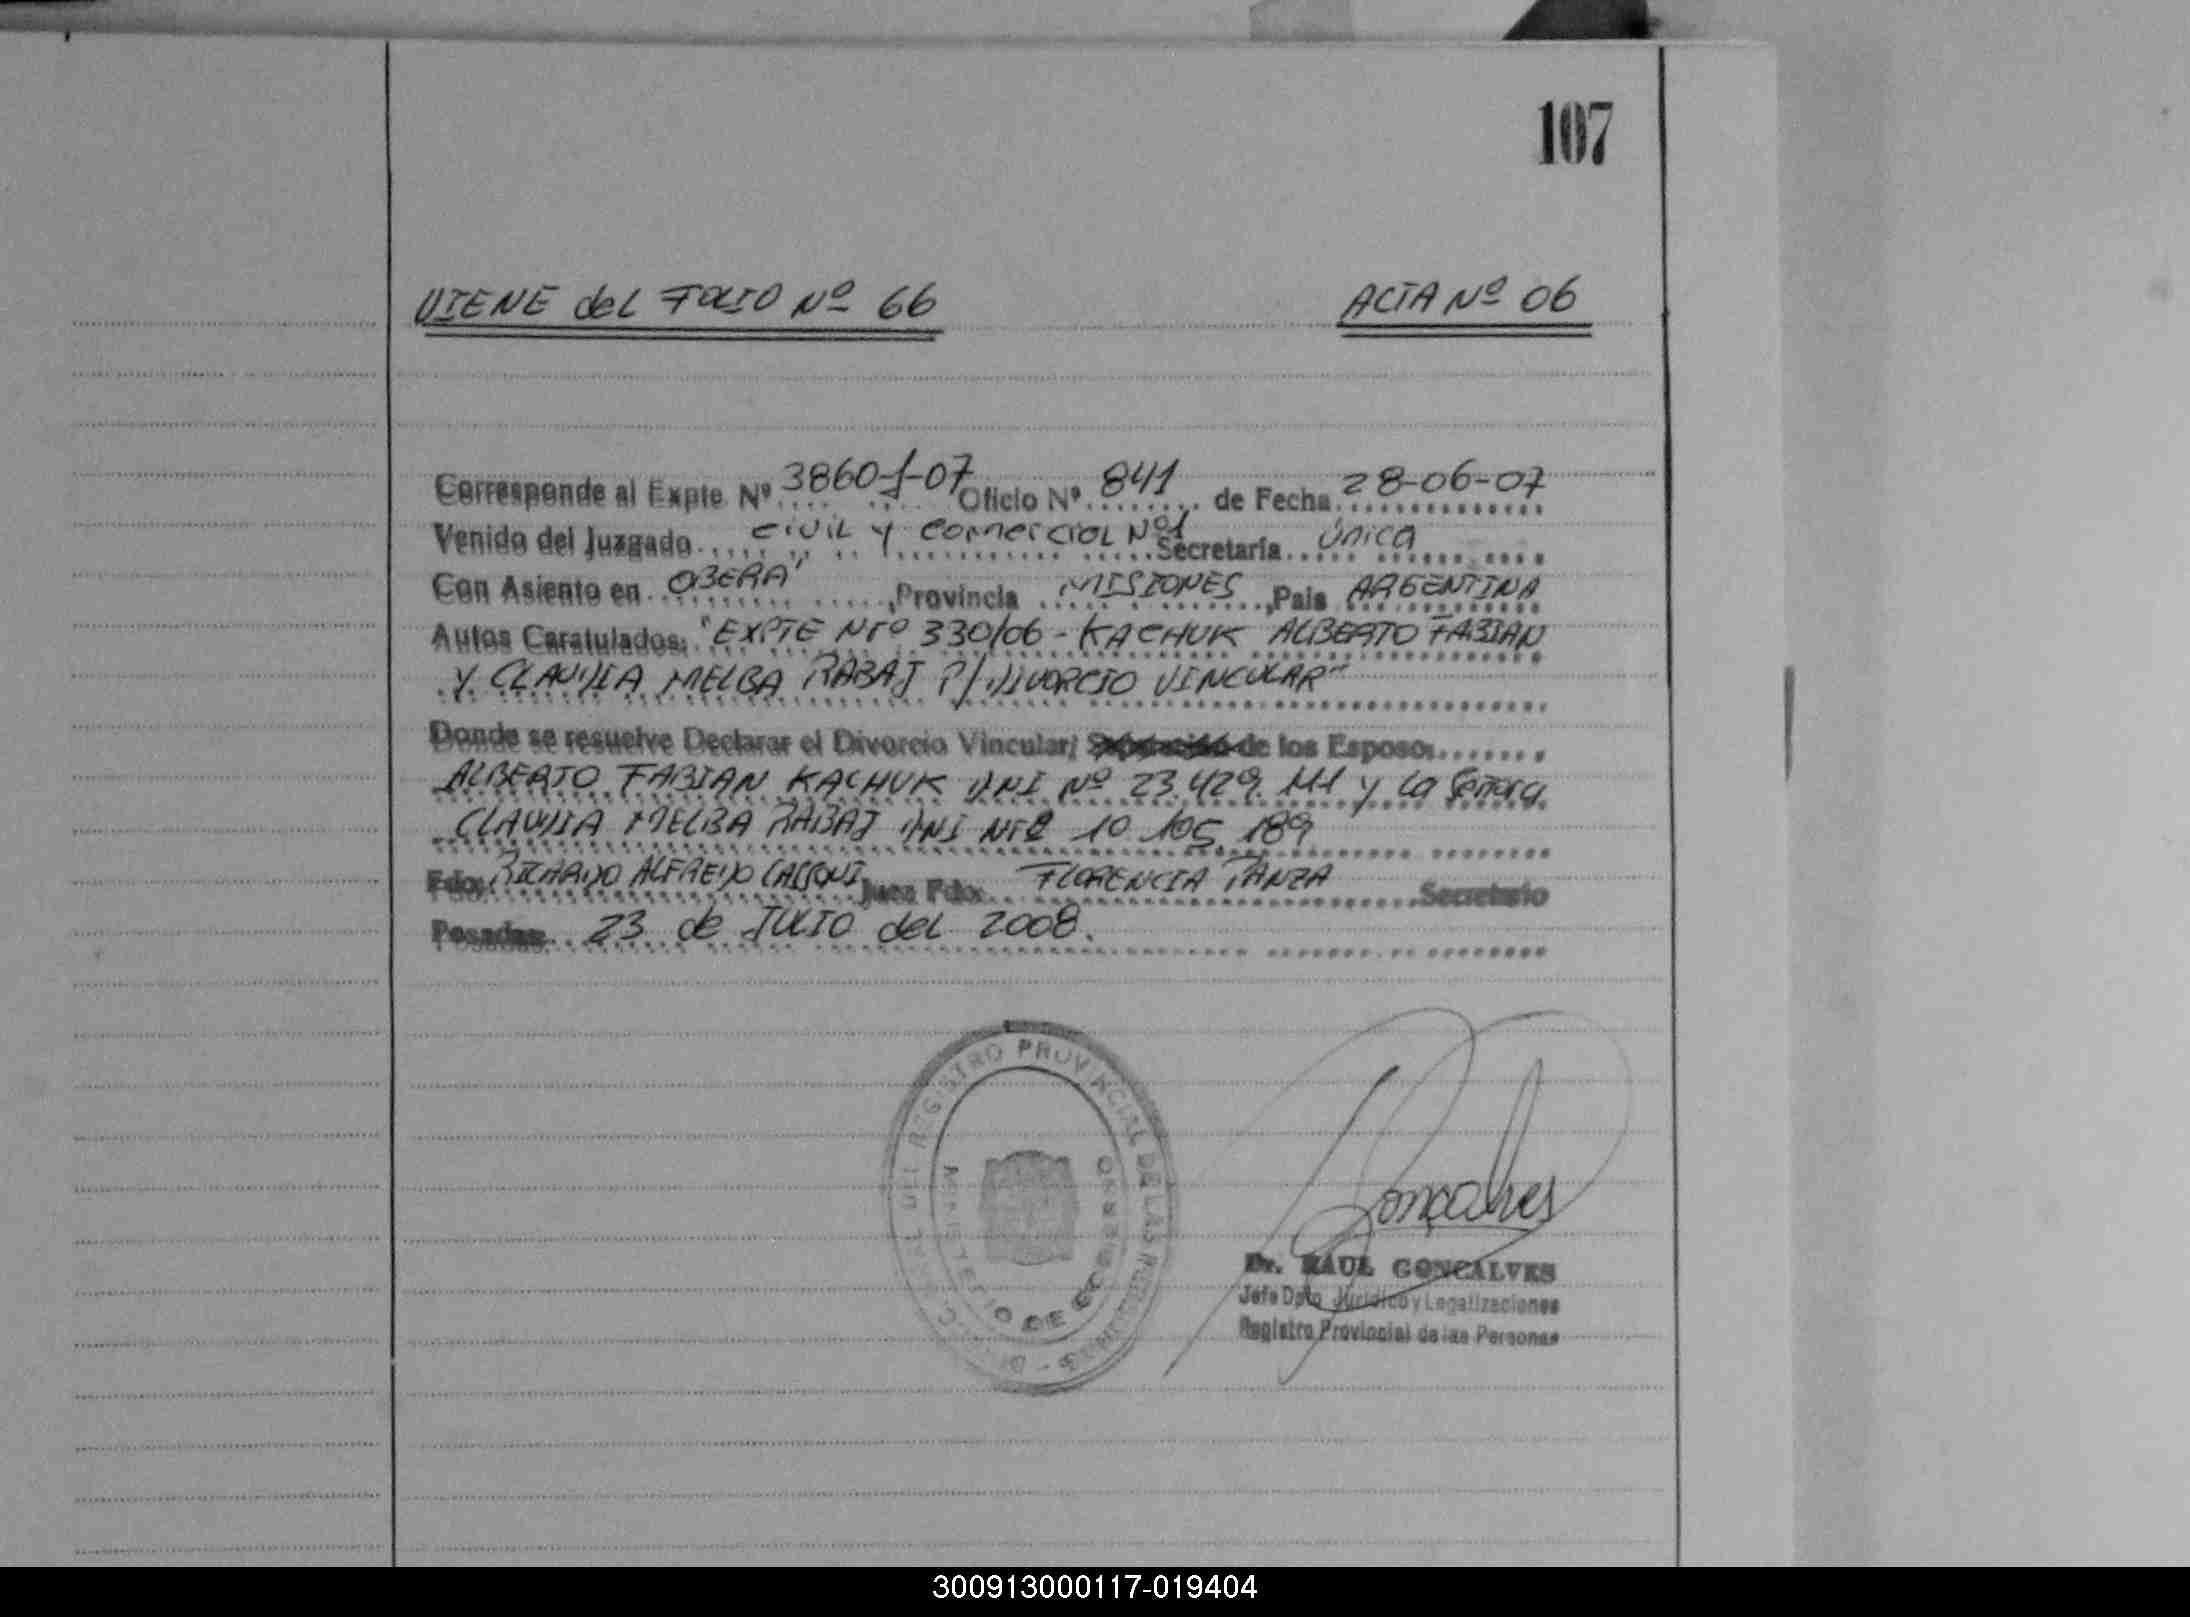 107
VIENE del FOLIO Nº 66 ACTA Nº 06
Corresponde al Expte Nº 3860-J-07 Oficio Nº 841 de Fecha 28-06-07
Venido del Juzgado civil y comercial Nº1 Secretaría única
Con Asiento en OBERA' , Provincia MISIONES , Pais ARGENTINA
Autos Caratulados: "EXPTE Nrº 330/06 - KACHUK ALBERTO FABIAN
y CLAUDIA MELBA RABAJ P/DIVORCIO VINCULAR"
Donde se resuelve Declarar el Divorcio Vincular/ Separación de los Esposos
ALBERTO FABIAN KACHUK DNI Nº 23.429.111 y la Señora
CLAUDIA MELBA RABAJ DNI Nrº 10 105 189
Fdo: RICARDO ALFREDO CASSONI Juez Fdo: FLORENCIA PANZA Secretario
Posadas 23 de JULIO del 2008.
REGISTRO PROVINCIAL DE LAS PERSONAS
MINISTERIO DE GOBIERNO
Gonçalves
Dr. RAUL GONCALVES
Jefe Dpto Jurídico y Legalizaciones
Registro Provincial de las Personas
300913000117-019404